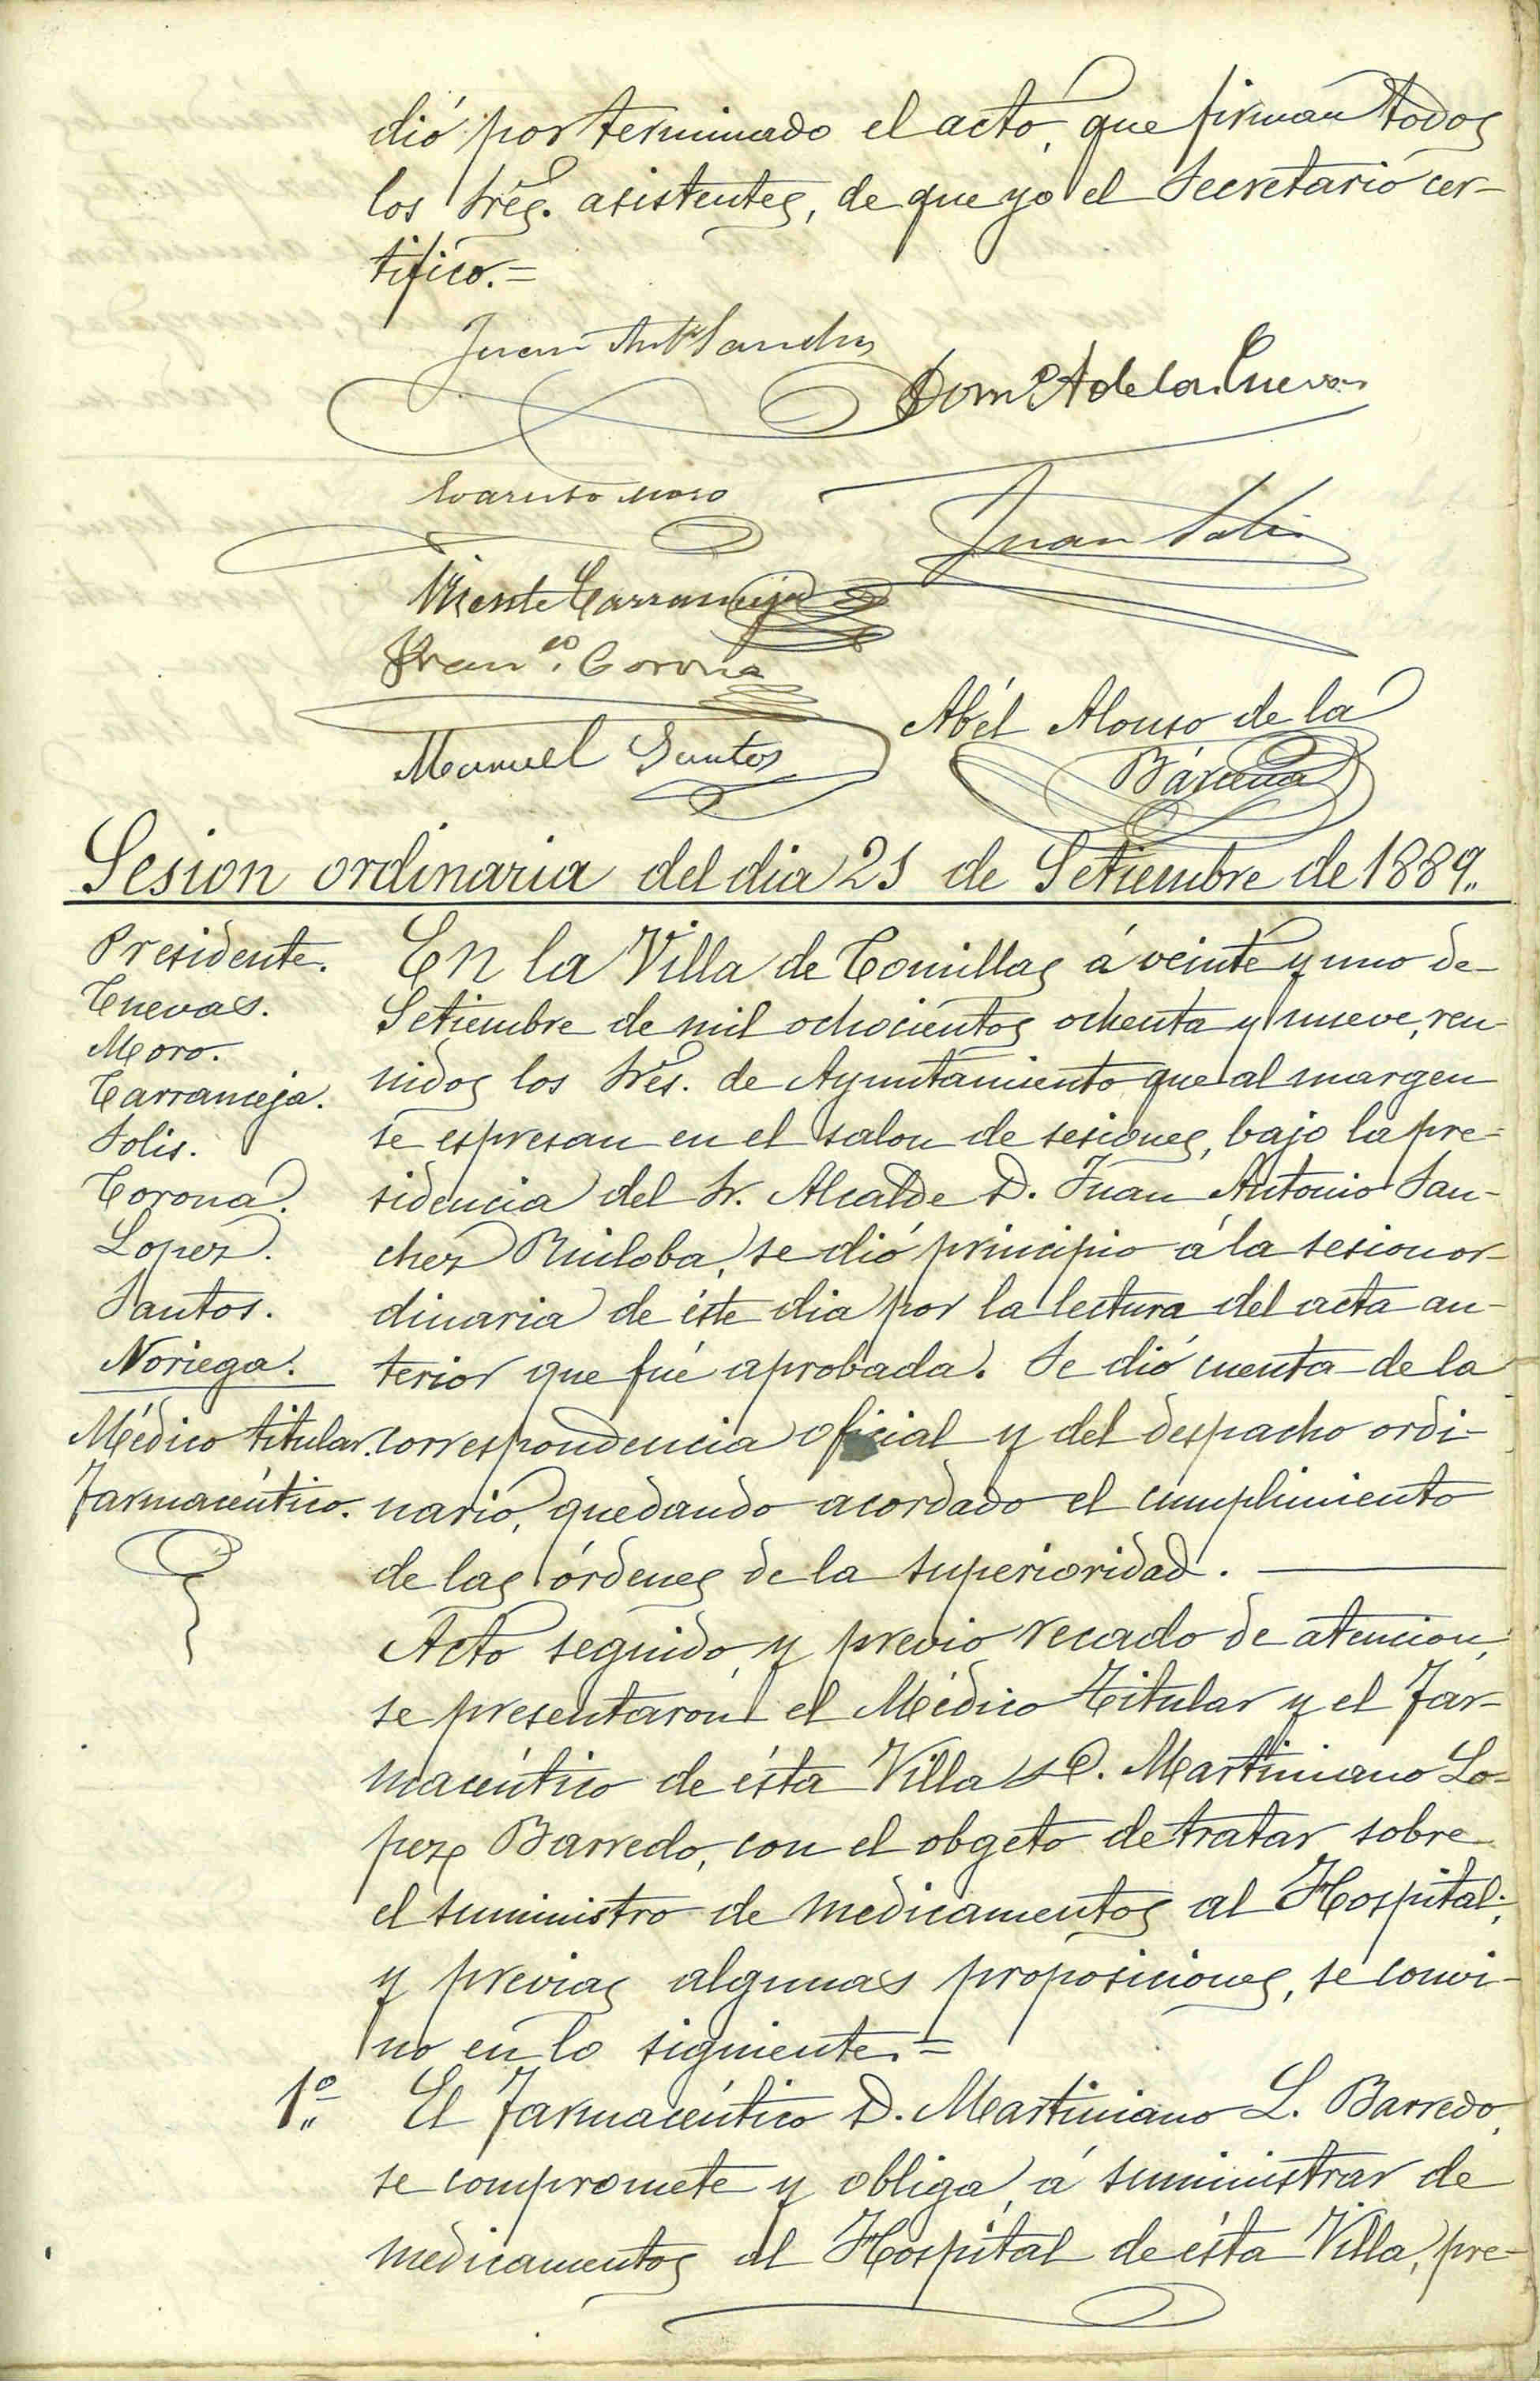 dió por terminado el acto, que firman todos
los Sres. asistentes, de que yo el Secretario cer-
tifico.=
Juan Ant.º Sanchez
Dom.º A de la Cueva
Evaristo Moro
Juan Solis
Vicente Carranceja
Fran.co Corona
Abél Alonso de la
Manuel Santos
Bárcena
Sesion ordinaria del dia 21 de Setiembre de 1889.,
Presidente.
Cuevas.
Moro.
Carranceja.
Solis.
Corona.
Lopez.
Santos.
Noriega.
Médico titular.
Farmacéutico.
En la Villa de Comillas á veinte y uno de
Setiembre de mil ochocientos ochenta y nueve, reu-
nidos los Sres. de Ayuntamiento que al margen
se espresan en el salon de sesiones, bajo la pre-
sidencia del Sr. Alcalde D. Juan Antonio San-
chez Ruiloba, se dió principio á la sesion or-
dinaria de éste dia por la lectura del acta an-
terior que fué aprobada. Se dió cuenta de la
correspondencia oficial y del despacho ordi-
nario, quedando acordado el cumplimiento
de las órdenes de la superioridad.
Acto seguido, y previo recado de atencion,
se presentaron el Médico Titular y el Far-
macéutico de ésta Villa D. Martiniano Lo-
pez Barredo, con el obgeto de tratar sobre
el suministro de medicamentos al Hospital;
y previas algunas proposiciones, se convi-
no en lo siguiente.=
1.º El Farmacéutico D. Martiniano L. Barredo,
se compromete y obliga, á suministrar de
medicamentos al Hospital de ésta Villa, pre-